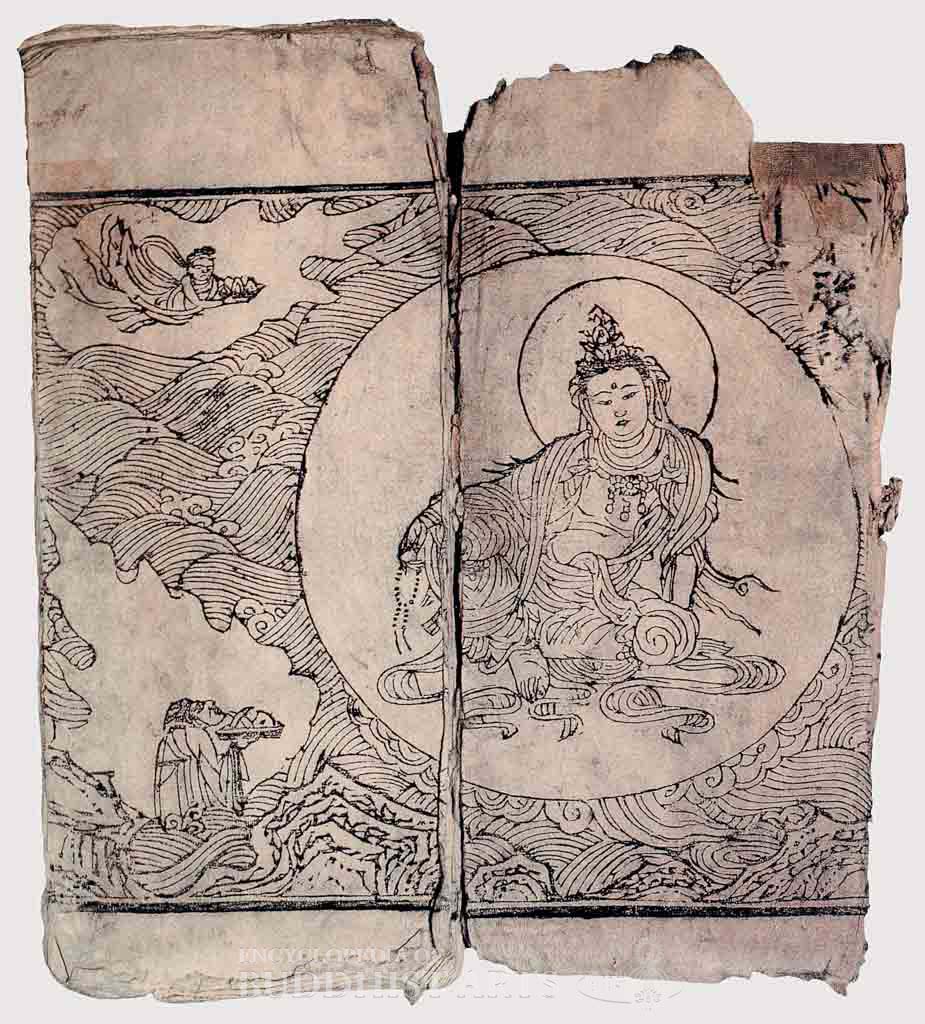 ENCYCLOPEDIA OF
BUDDHIST ARTS